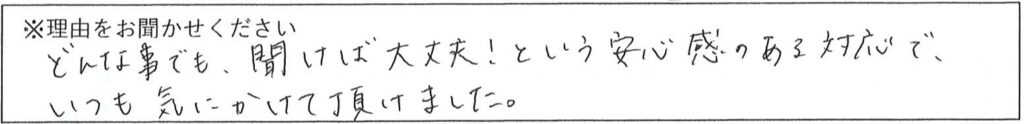 ※理由をお聞かせください
どんな事でも、聞けば大丈夫！という安心感のある対応で、
いつも気にかけて頂けました。